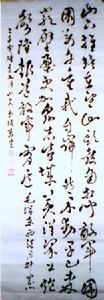 山下旌旗在望山頭鼓角相聞敵軍
圍困萬千重我自巋然不動早已森
嚴壁壘更加眾志成城黃洋界上
炮聲隆報道敵軍宵遁毛澤東西江月井岡山